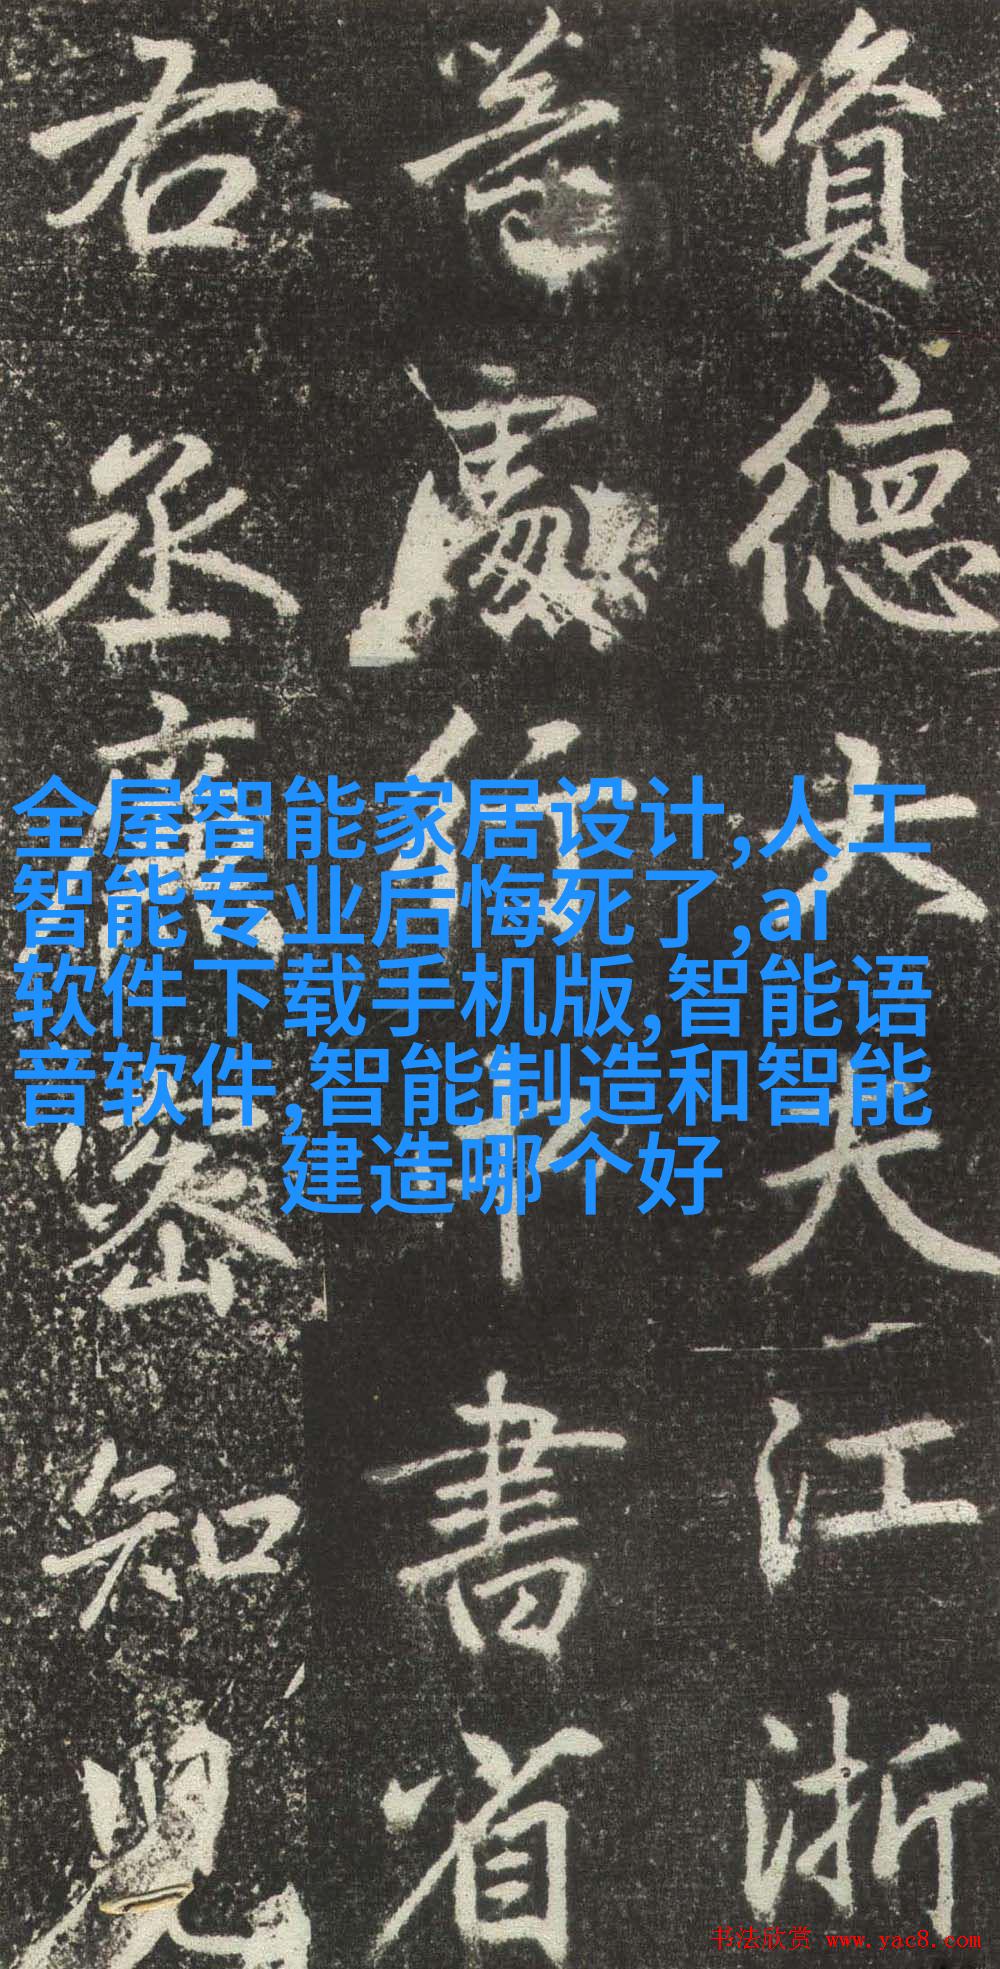 資德大夫江浙
等處行中書省
右丞廉密知兒
全屋智能家居设计,人工
智能专业后悔死了,ai
软件下载手机版,智能语
音软件,智能制造和智能
建造哪个好
书法欣赏 www.yac8.com